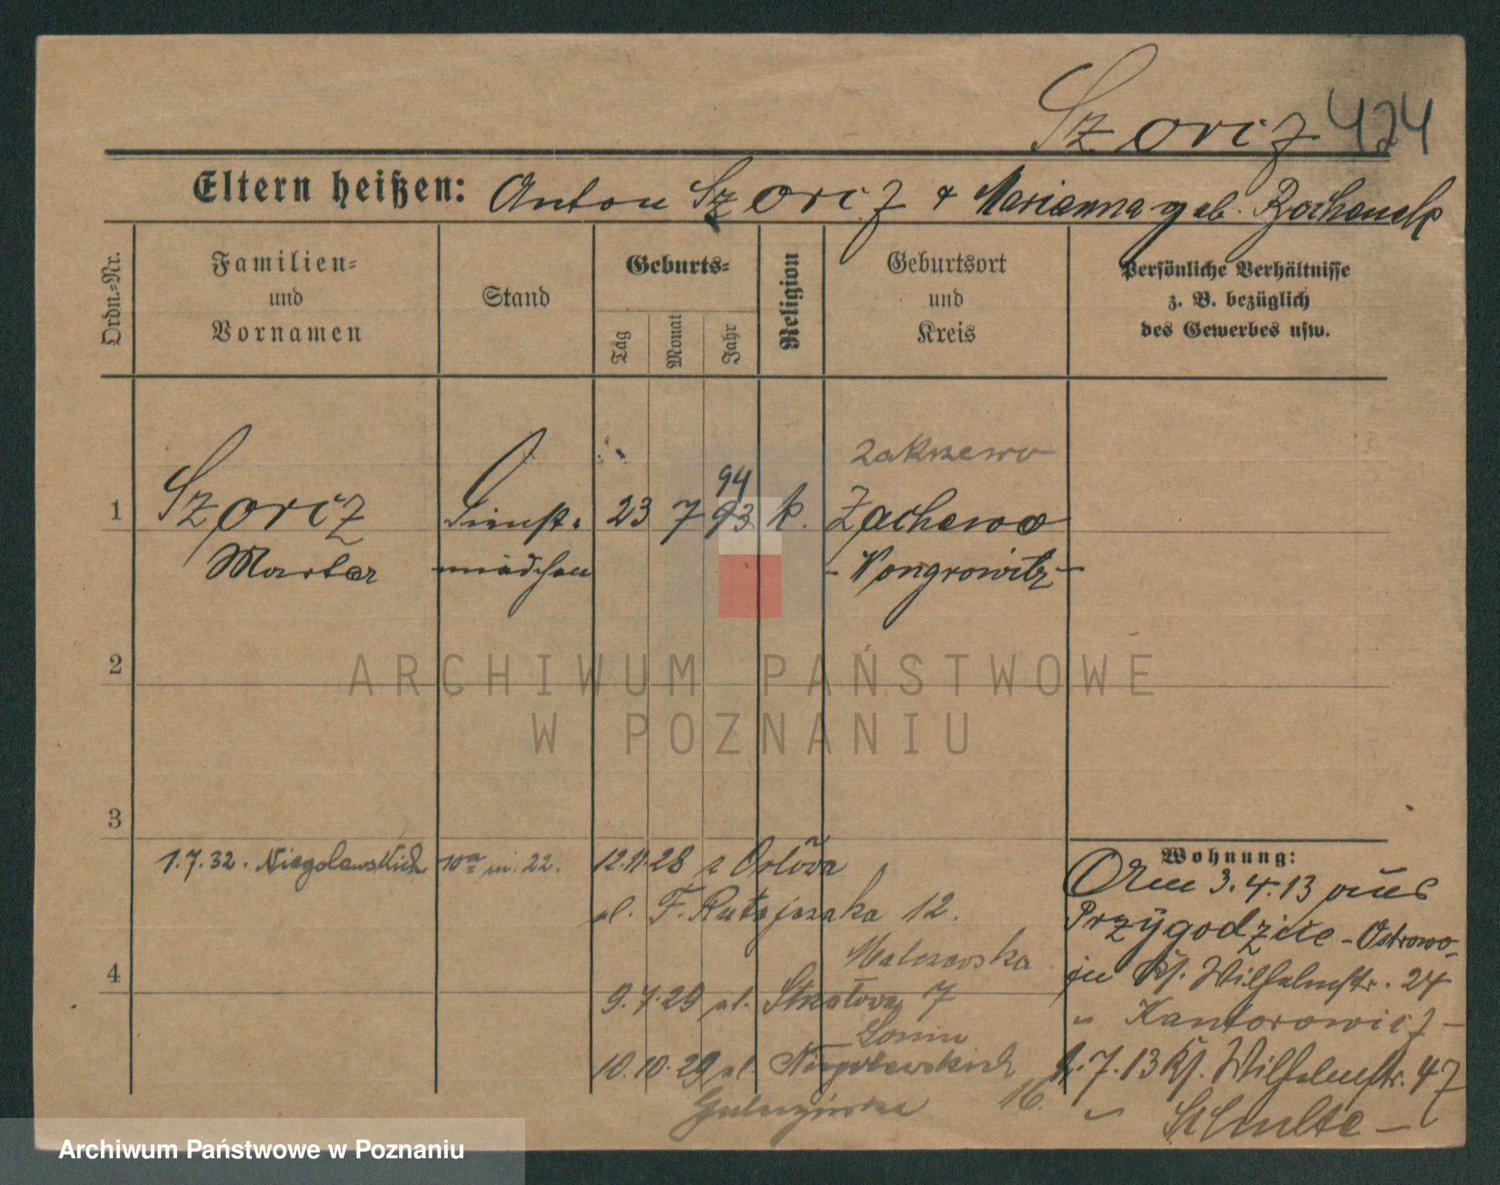 Szorcz 424
Eltern heißen: Anton Szorcz & Marianna geb.
Ordn.=Nr.
Familien=
und
Vornamen
Stand
Geburts=
Tag
Monat
Jahr
Religion
Geburtsort
und
Kreis
Persönliche Verhältnisse
z. B. bezüglich
des Gewerbes usw.
Zakrzewo
94
1 Szorcz Dienst= 23 7 93 k. Zachewo
Marta mädchen - Wongrowitz -
2
3
1.7.32. Niegolewskich 10a m. 22. 12.11.28 z
ul. F. Ratajczaka 12.
4
9.7.29 ul. 7
10.10.29 ul. Niegolewskich
16.
Wohnung:
3.4.13 aus
Przygodzice - Ostrowo-
Wilhelmstr. 24
" Kantorowicz -
2.7.13 Wilhelmstr. 47
" Schulte -
ARCHIWUM PAŃSTWOWE
W POZNANIU
Archiwum Państwowe w Poznaniu